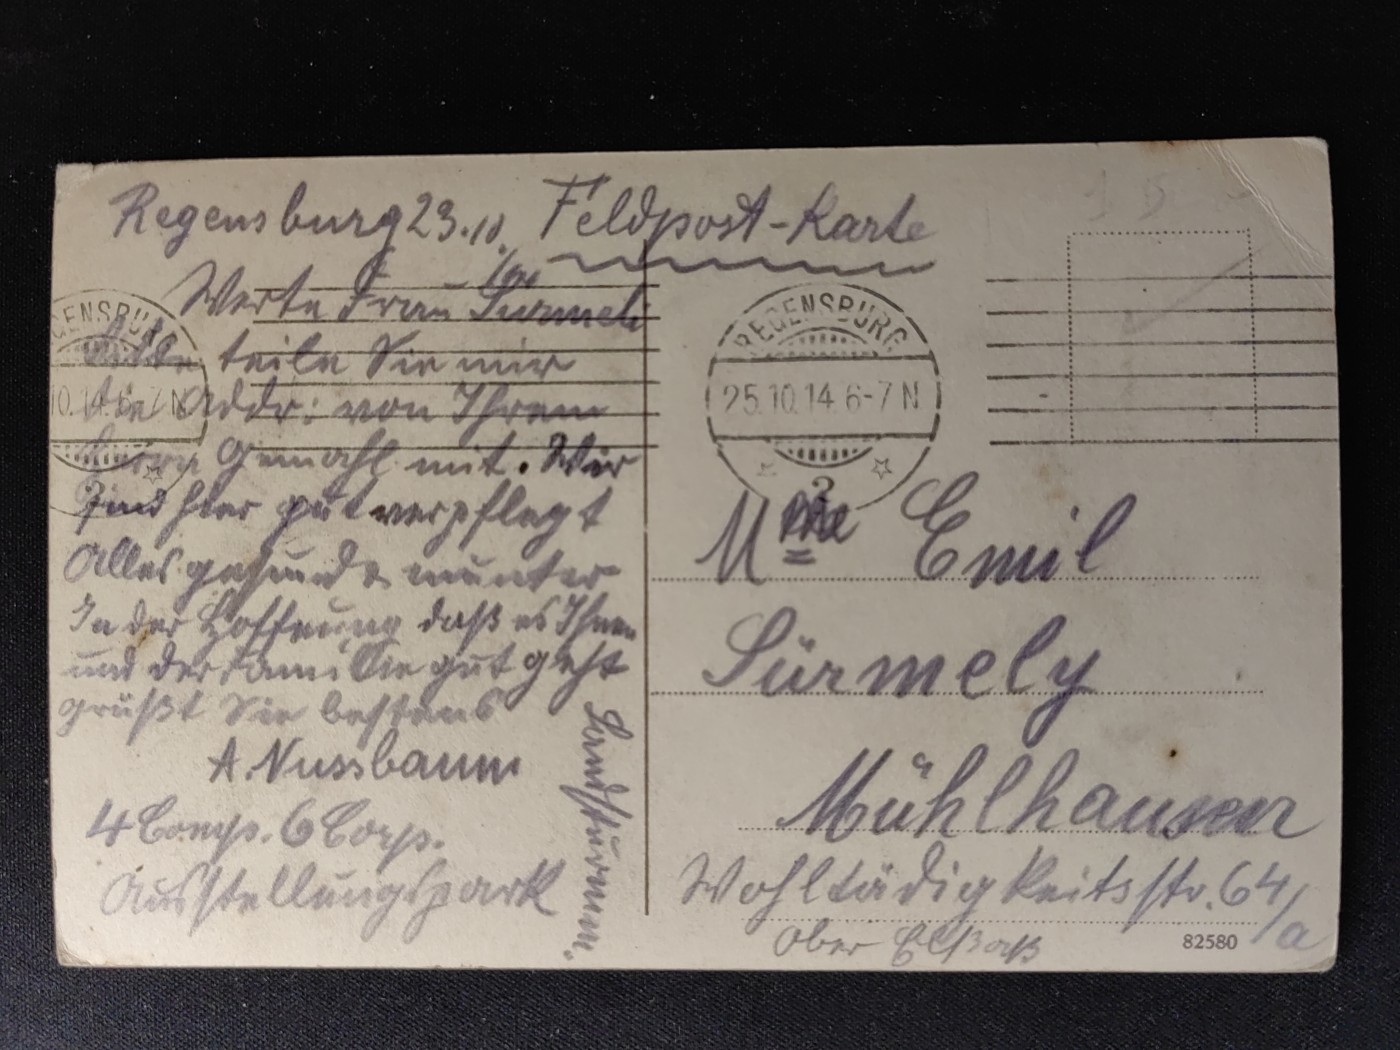 Regensburg 23.10.
Feldpost-Karte
Werte Frau Sürmeli
Bitte teile Sie mir
die Addr: von Ihrem
Herrn Gemahl mit. Wir
sind hier gut verpflegt
Alles gesund & munter
In der Hoffnung daß es Ihnen
und der Familie gut geht
grüßt Sie bestens
A. Nussbaum
4 Comp. 6 Corp.
Ausstellungspark
Landsturmm.
REGENSBURG
25.10.14.6-7N
2
GENSBURG
10.14.6-7N
Mme Emil
Sürmely
Mühlhausen
Wohltädigkeitsstr. 64/a
Ober Elsaß
82580